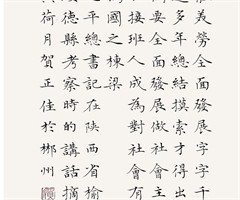 美勞全面發展字字千
年總結摸索才得出
接班人成為對社會有
國之棟梁
平總書記在陝西省榆
德縣考察時的講話摘
荷月賀正佳於郴州